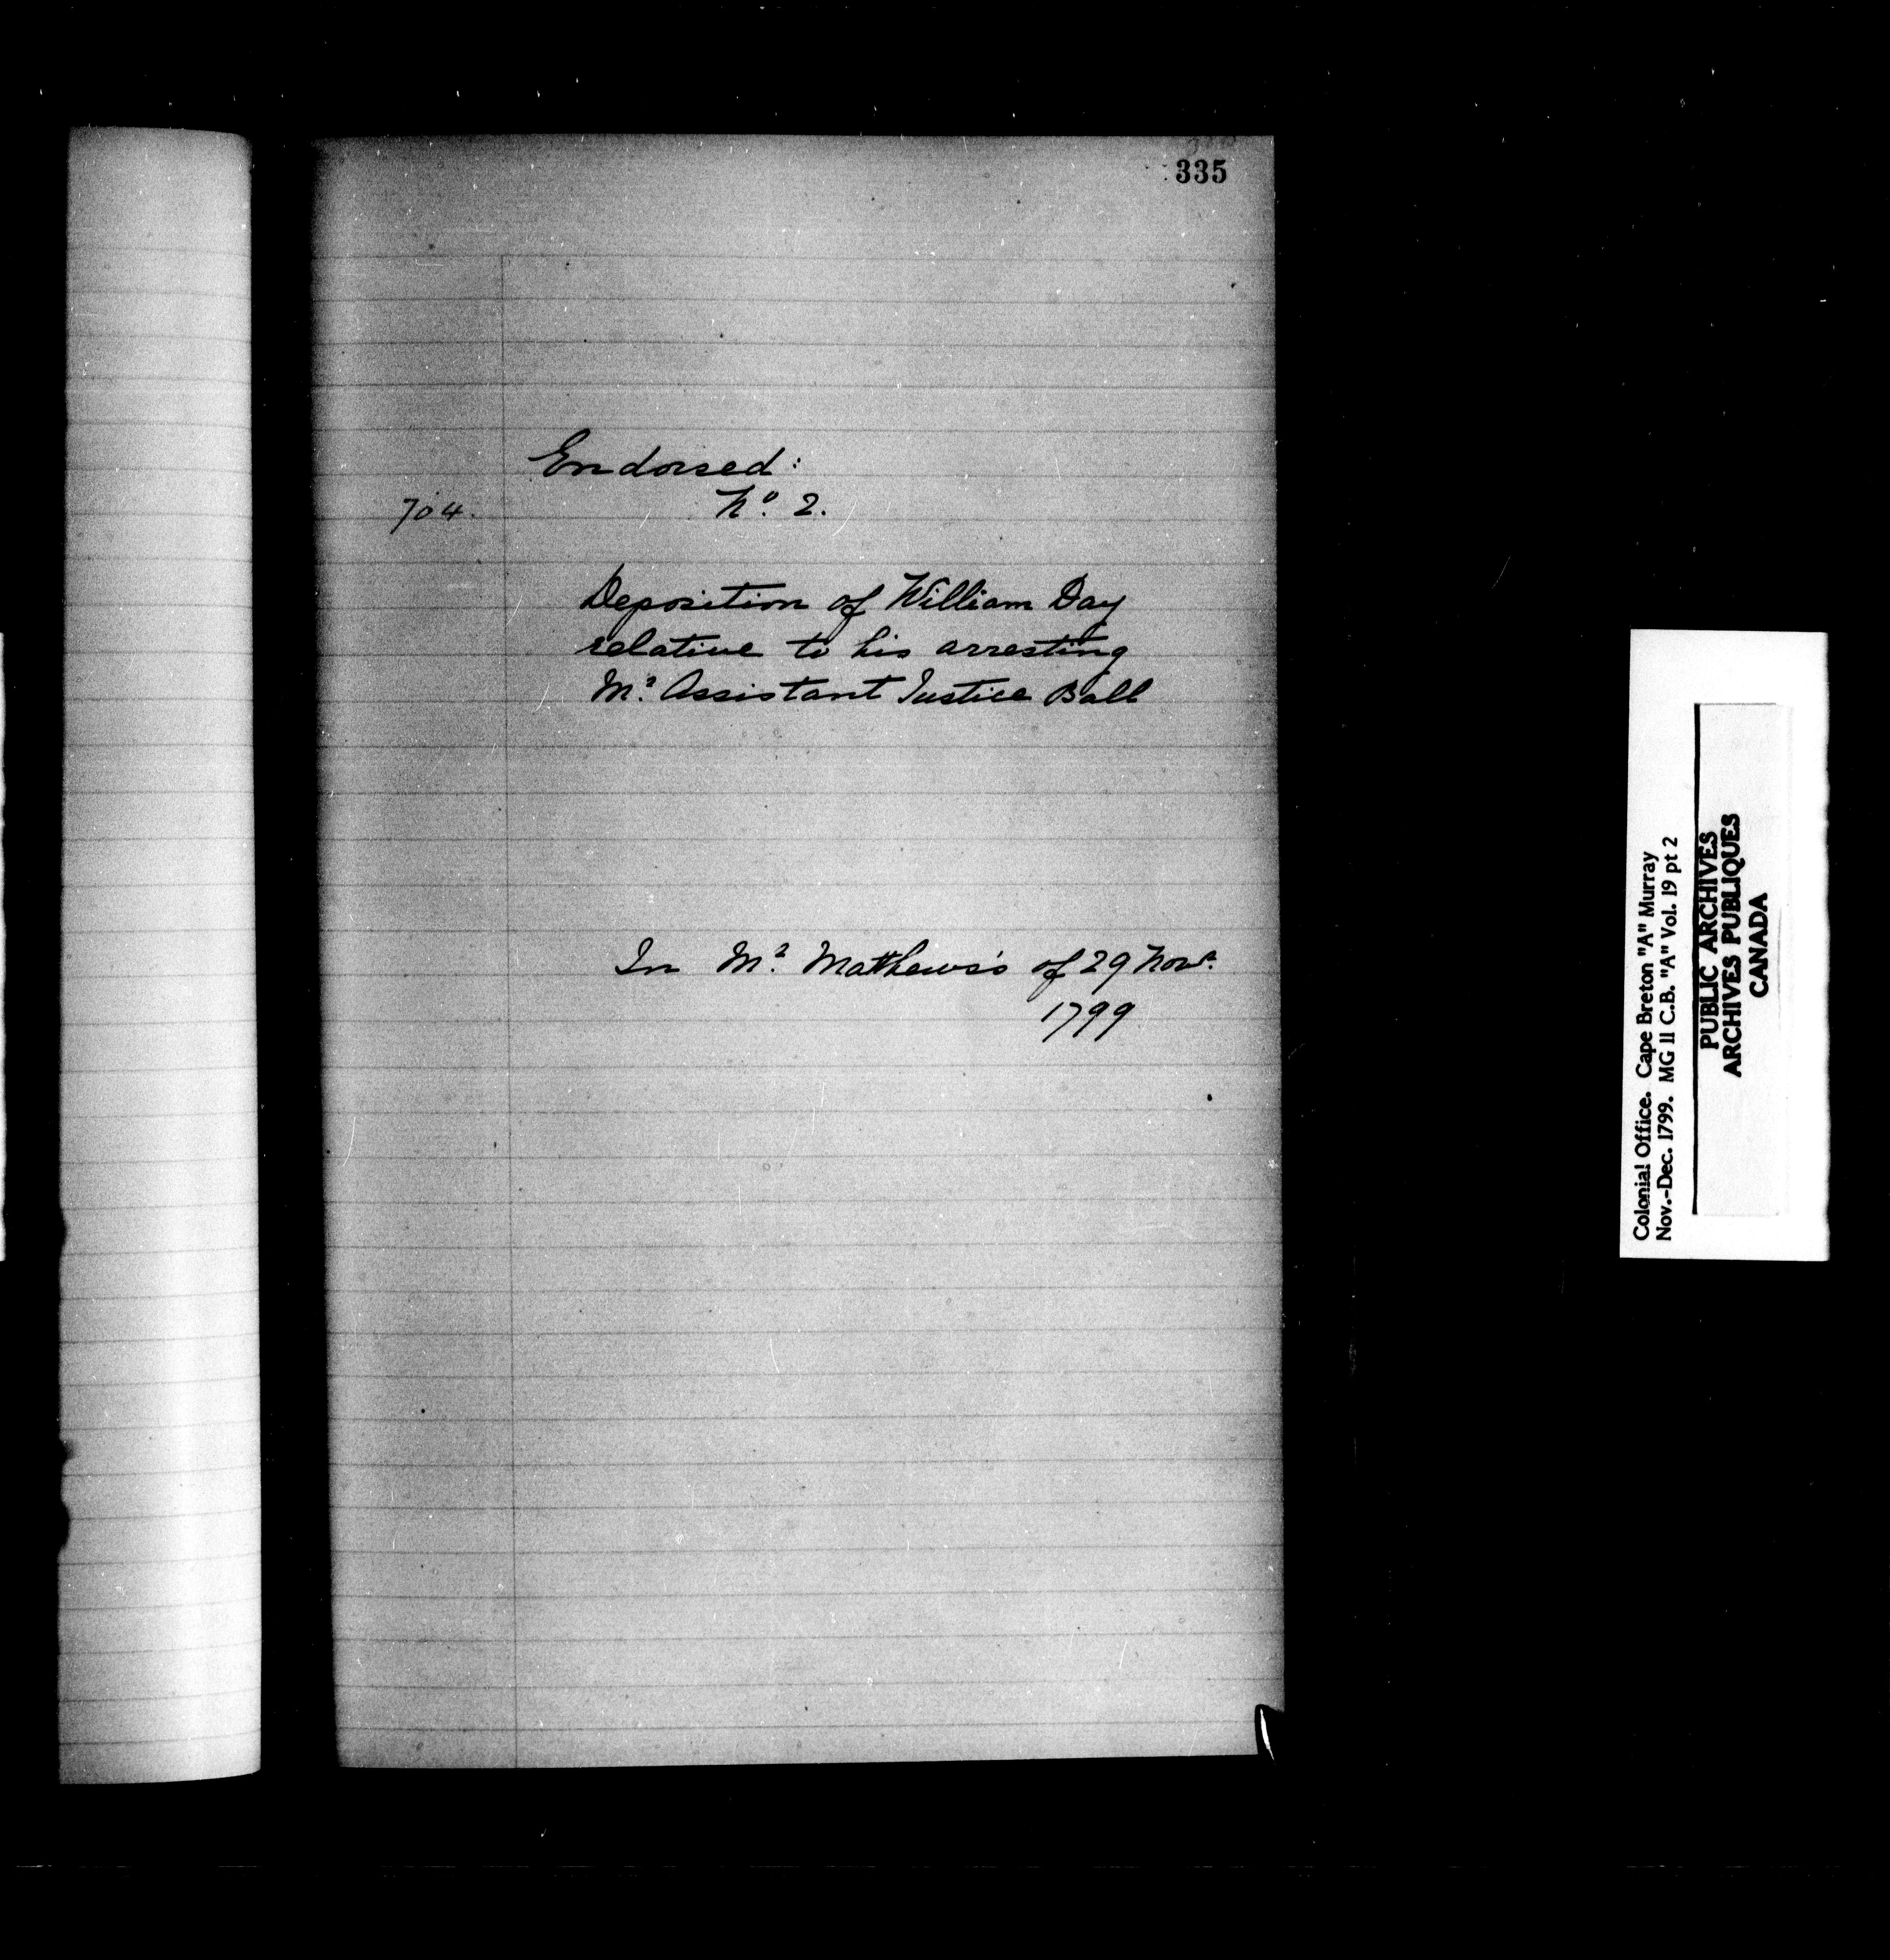 335
Endorsed:
704.
Nº. 2.
Deposition of William Day
relative to his arresting
Mr. Assistant Justice Ball
In Mr. Mathews's of 29 Novr.
1799
Colonial Office. Cape Breton "A" Murray
Nov.-Dec. 1799. MG 11 C.B. "A" Vol. 19 pt 2
PUBLIC ARCHIVES
ARCHIVES PUBLIQUES
CANADA